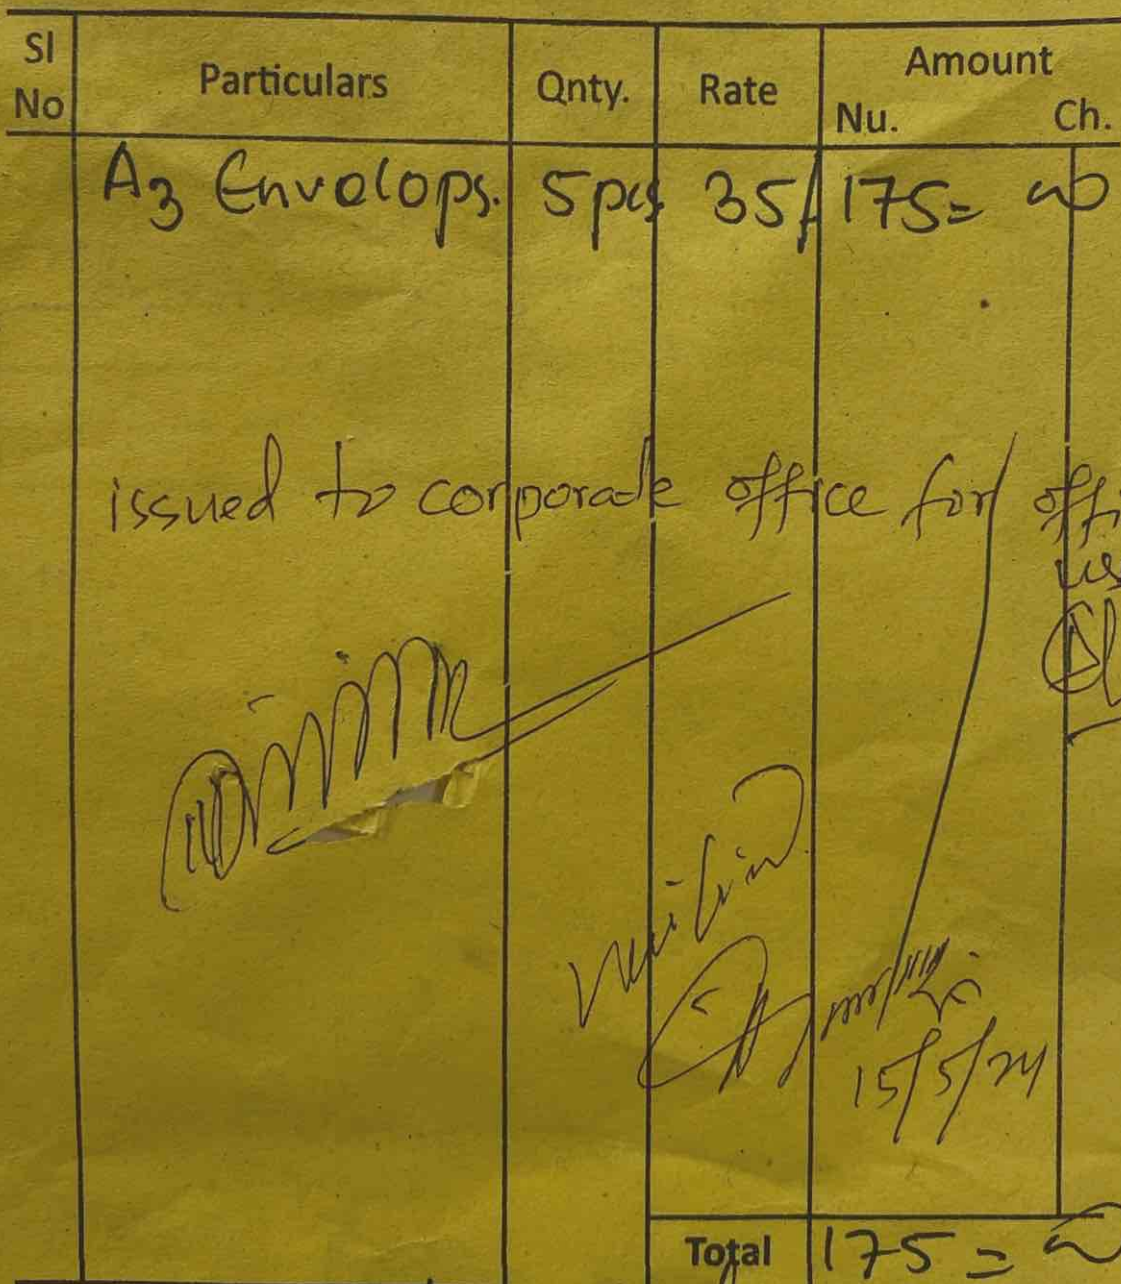 Sl No Particulars Qnty. Rate Amount
Nu. Ch.
A3 Envelops. 5 pcs 35/ 175= 00
issued to corporate office for offi
us
15/5/24
Total 175 = 00